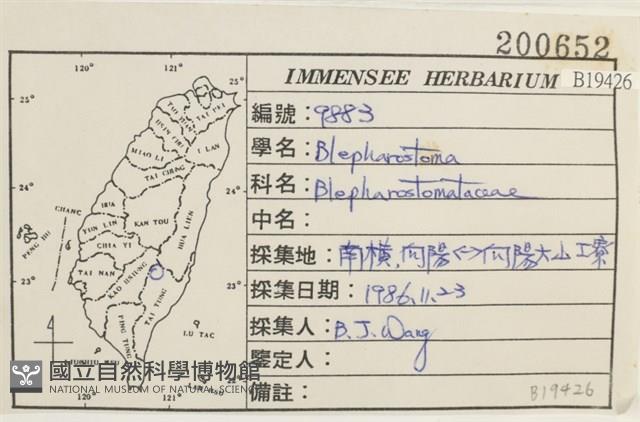 200652
IMMENSEE HERBARIUM B19426
編號：9883
學名：Blepharostoma
科名：Blepharostomataceae
中名：
採集地：南橫，向陽<->向陽大山工寮
採集日期：1986.11.23
採集人：B. J. Wang
鑒定人：
備註：
B19426
120° 121°
25° 25°
TAI PEI
I LAN
MIAO LI
TAI CHUNG
24° 24°
CHANG
NAN TOU
HUA LIEN
YUN LIN
PENG HU
CHIA YI
TAI NAN
KAO HSIUNG
23° 23°
TAI TUNG
PING TUNG
LU TAO
國立自然科學博物館
NATIONAL MUSEUM OF NATURAL SCIENCE
120° 121°